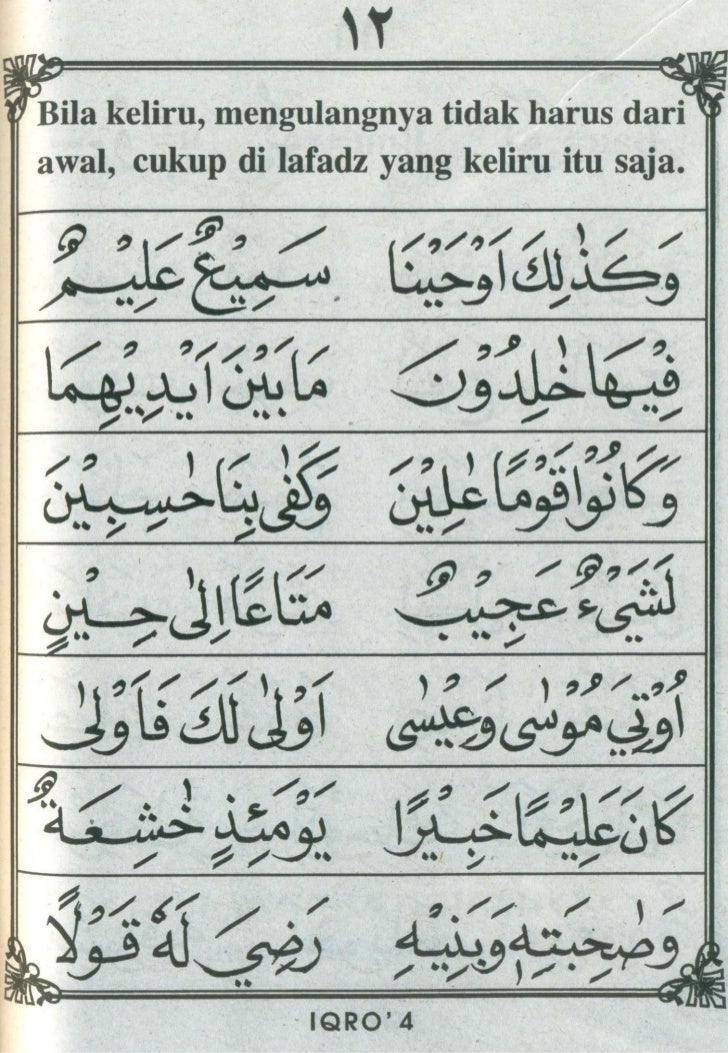 ١٢
Bila keliru, mengulangnya tidak harus dari
awal, cukup di lafadz yang keliru itu saja.
وَكَذٰلِكَ اَوْحَيْنَا سَمِيْعٌ عَلِيْمٌ
فِيْهَا خٰلِدُوْنَ مَا بَيْنَ اَيْدِيْهِمَا
وَكَانُوْا قَوْمًا عٰلِيْنَ وَكَفٰى بِنَا حٰسِبِيْنَ
لَشَيْءٌ عَجِيْبٌ مَتَاعًا اِلٰى حِيْنٍ
اُوْتِيَ مُوْسٰى وَعِيْسٰى اَوْلٰى لَكَ فَاَوْلٰى
كَانَ عَلِيْمًا خَبِيْرًا يَوْمَئِذٍ خٰشِعَةٌ
وَصٰحِبَتِهٖ وَبَنِيْهِ رَضِيَ لَهٗ قَوْلًا
IQRO' 4